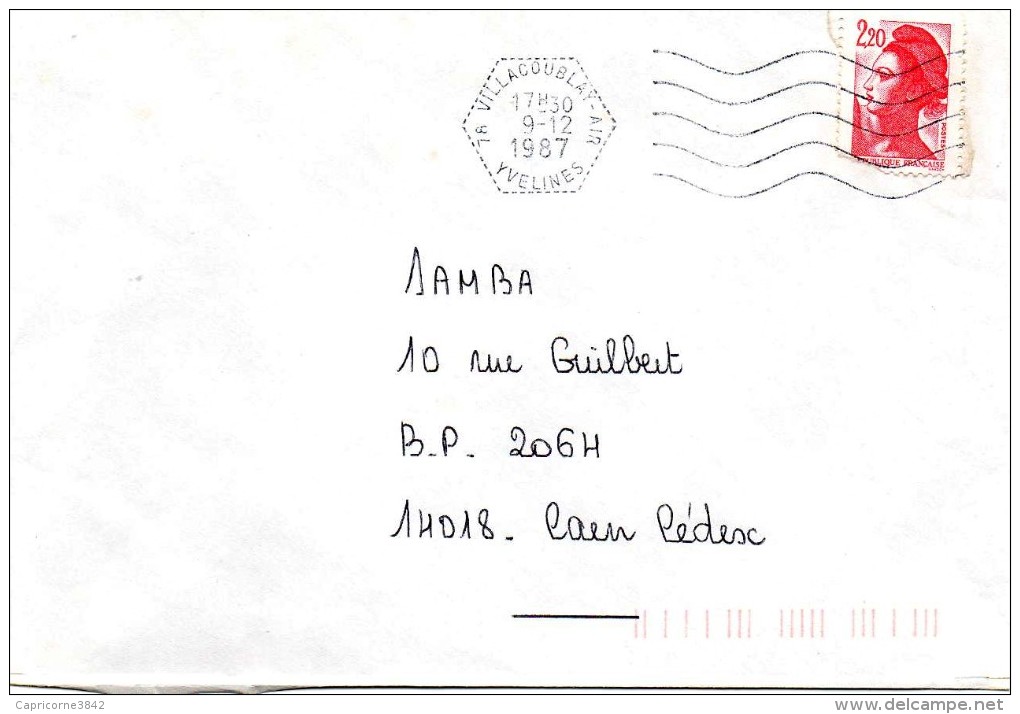 78 VILLACOUBLAY-AIR
17H30
9-12
1987
YVELINES
2,20
POSTES
REPUBLIQUE FRANÇAISE
SAMBA
10 rue Guilbert
B.P. 2064
14018. Caen Cédesc
Capricorne3842
www.delcampe.net